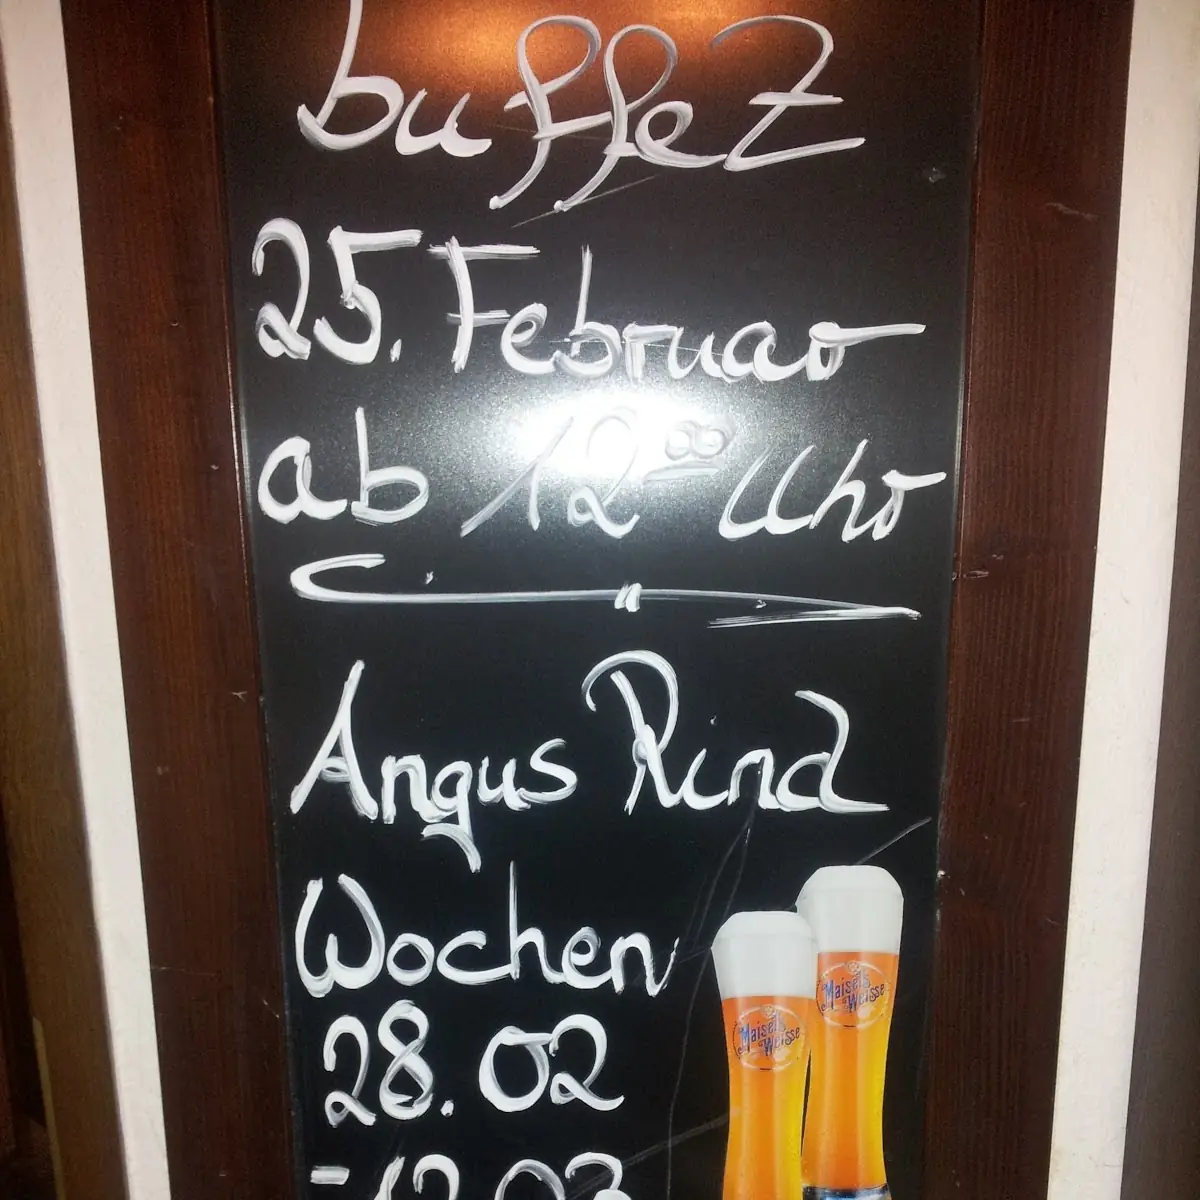 buffet
25. Februar
ab 12⁰⁰ Uhr
Angus Rind
Wochen
28. 02
- 12.03
Maisel's
Weisse
Maisel's
Weisse